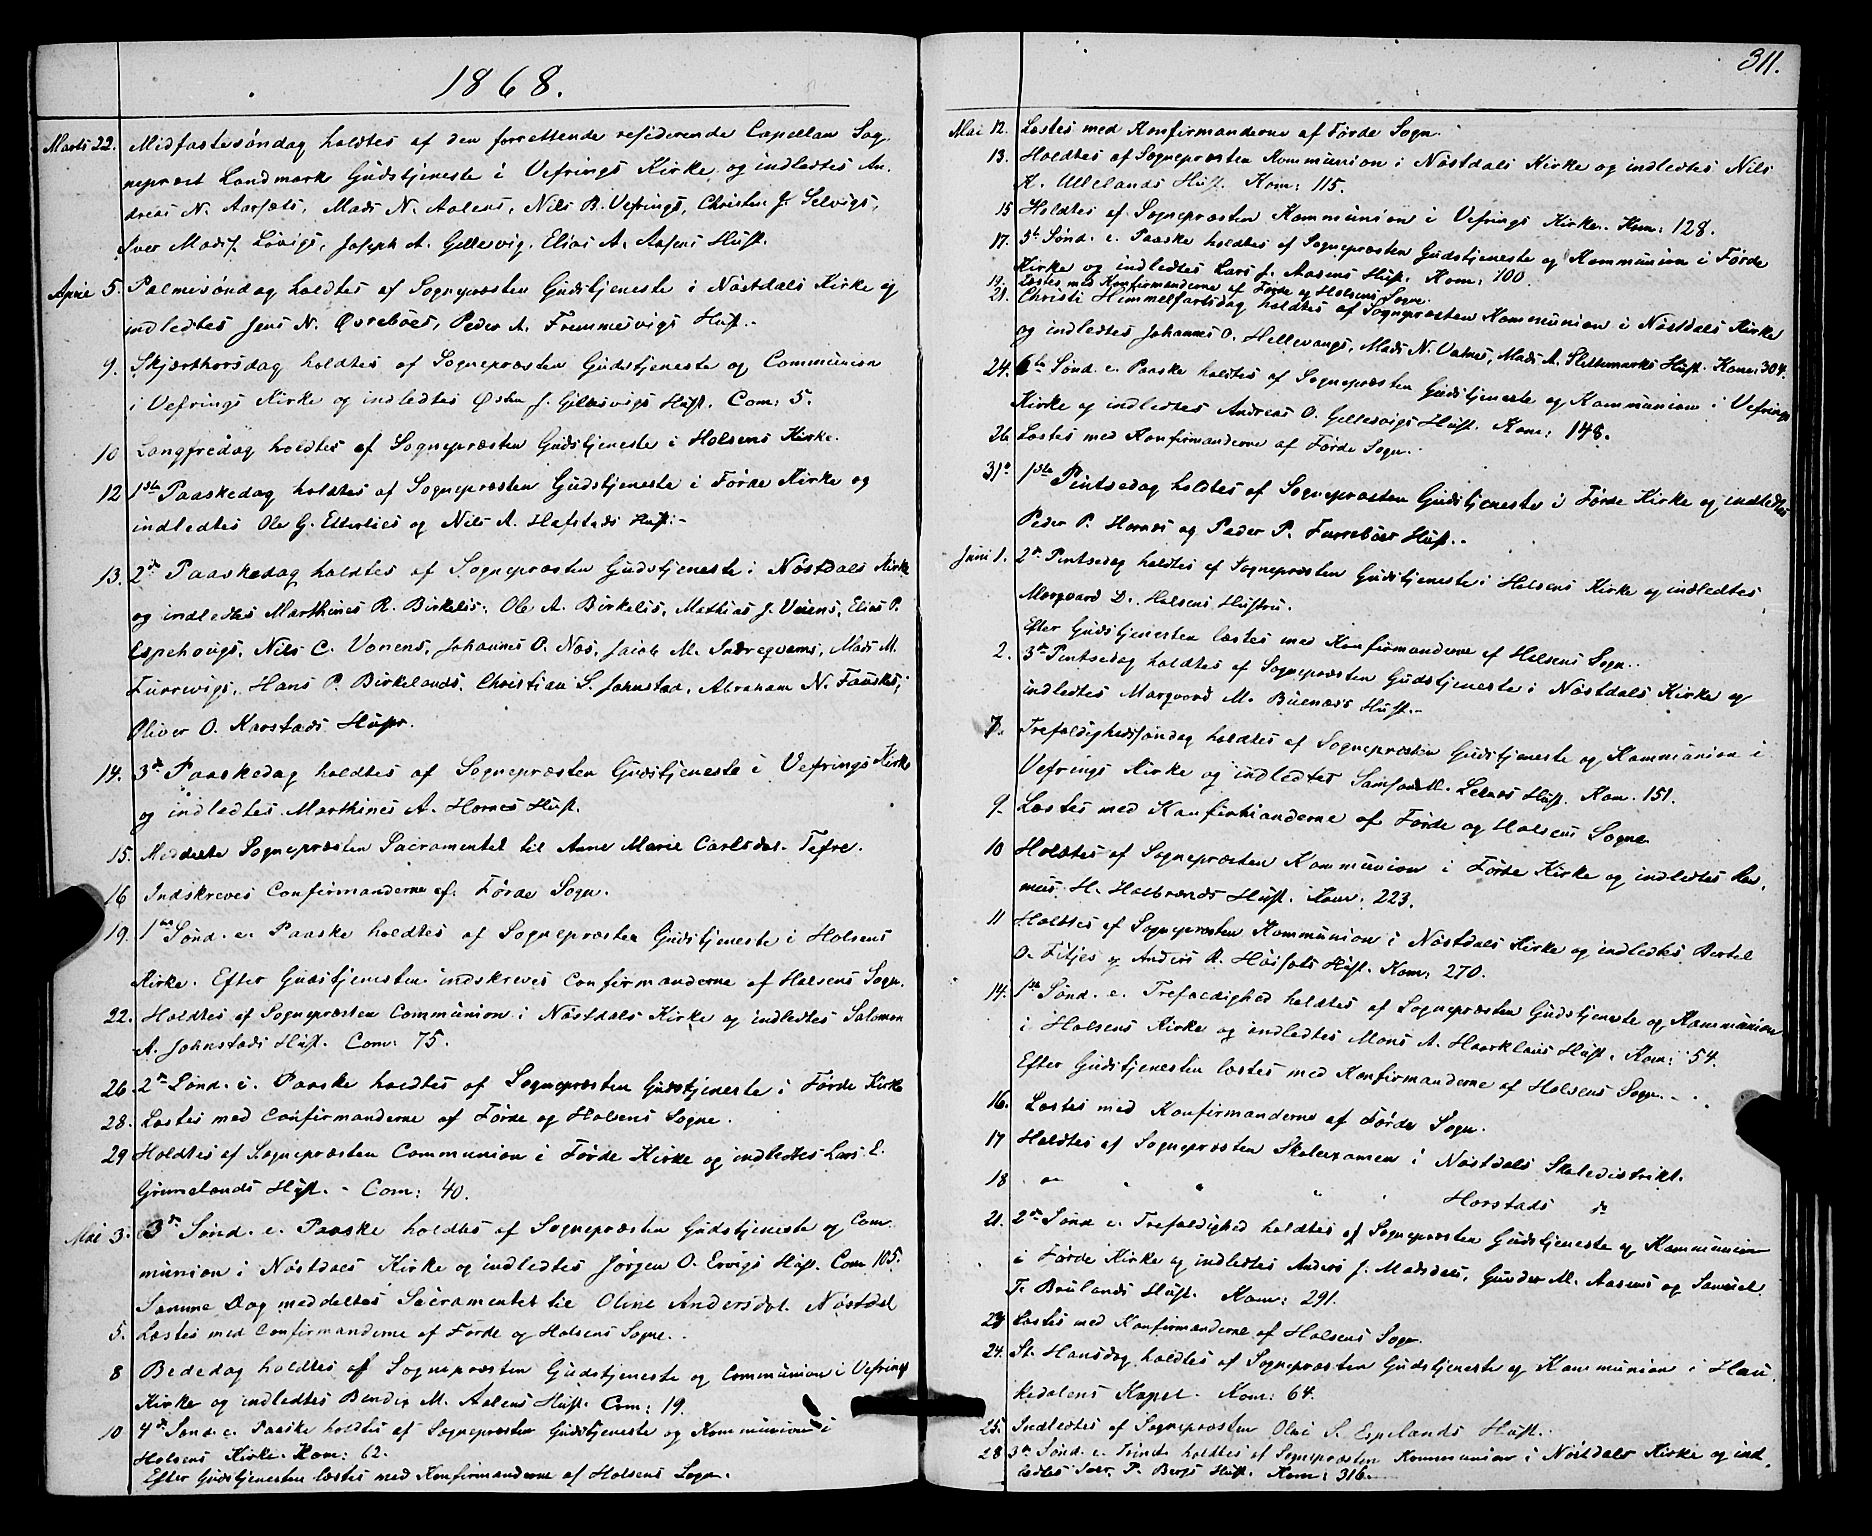 1868.
Marts 22. Midfastesøndag holdtes af den forrettende residerende Capellan Sog
nepræst Landmark Gudstjeneste i Vefrings Kirke og indledtes An-
dreas N. Aarsæts, Mads N. Aalens, Nils B. Vefrings, Christen J. Selvigs,
Iver Mads. Løvigs, Joseph A. Gellesvig, Elias A. Aasens Hust.
April 5. Palmesøndag holdtes af Sognepræsten Gudstjeneste i Nøstdals Kirke og
indledtes Jens N. Øvrebøes, Peder A. Fremmesvigs Hust.
9. Skjærthorsdag holdtes af Sognepræsten Gudstjeneste og Communion
i Vefrings Kirke og indledtes Østen J. Gellesvigs Hust. Com: 5.
10 Langfredag holdtes af Sognepræsten Gudstjeneste i Holsens Kirke.
12 1ste Paaskedag holdtes af Sognepræsten Gudstjeneste i Førde Kirke og
indledtes Ole G. og Nils A. Hafstads Hust.
13. 2den Paaskedag holdtes af Sognepræsten Gudstjeneste i Nøstdals Kirke
og indledtes Marthines R. Birkelis, Ole A. Birkelis, Mathias J. Veiens, Elias P.
Espehougs, Nils C. Vonens, Johannes O. Nøs, Jacob M. Indreqvams, Mads M.
Furrevigs, Hans P. Birkelands, Christian S. Johnstad, Abraham N. Fauskes,
Oliver O. Karstads Hustr.
14. 3de Paaskedag holdtes af Sognepræsten Gudstjeneste i Vefrings Kirke
og indledtes Marthines A. Hornes Hust.
15. Meddelte Sognepræsten Sacramentet til Anne Marie Carlsdat. Tefre.
16 Indskreves Confirmanderne af Førde Sogn.
19. 1ste Sønd. e. Paaske holdtes af Sognepræsten Gudstjeneste i Holsens
Kirke. Efter Gudstjenesten indskreves Confirmanderne af Holsens Sogn.
22. Holdtes af Sognepræsten Communion i Nøstdals Kirke og indledtes Salomon
A. Johnstads Hust. Com: 75.
26 2den Sønd. e. Paaske holdtes af Sognepræsten Gudstjeneste i Førde Kirke
28. Læstes med Confirmanderne af Førde og Holsens Sogne.
29 Holdtes af Sognepræsten Communion i Førde Kirke og indledtes Lars E.
Grimelands Hust. - Com: 40.
Mai 3. 3de Sønd. e. Paaske holdtes af Sognepræsten Gudstjeneste og Com-
munion i Nøstdals Kirke og indledtes Jørgen O. Ervigs Hust. Com 105.
Samme Dag meddeltes Sacramentet til Oline Andersdat. Nøstdal
5. Læstes med Confirmanderne af Førde og Holsens Sogne.
8 Bededag holdtes af Sognepræsten Gudstjeneste og Communion i Vefrings
Kirke og indledtes Bendix M. Aalens Hust. Com: 19.
10 4de Sønd. e. Paaske holdtes af Sognepræsten Gudstjeneste og Kommunion i
Holsens Kirke. Kom: 62.
Efter Gudstjenesten læstes med Konfirmanderne af Holsens Sogn.
311.
Mai 12. Læstes med Konfirmanderne af Førde Sogn.
13. Holdtes af Sognepræsten Kommunion i Nøstdals Kirke og indledtes Nils
A. Ullelands Hust. Kom: 115.
15 Holdtes af Sognepræsten Kommunion i Vefrings Kirke. Kom: 128.
17. 5te Sønd. e. Paaske holdtes af Sognepræsten Gudstjeneste og Kommunion i Førde
Kirke og indledtes Lars J. Aasens Hust. Kom: 100.
19. Læstes med Konfirmanderne af Førde og Holsens Sogne.
21. Christi Himmelfartsdag holdtes af Sognepræsten Kommunion i Nøstdals Kirke
og indledtes Johannes O. Hellevangs, Mads N. Vatnes, Mads A. Slettemarks Hust. Kom: 304.
24. 6te Sønd. e. Paaske holdtes af Sognepræsten Gudstjeneste og Kommunion i Vefrings
Kirke og indledtes Andreas O. Gellesvigs Hust. Kom: 148.
26 Læstes med Konfirmanderne af Førde Sogn.
31. 1ste Pintsedag holdtes af Sognepræsten Gudstjeneste i Førde Kirke og indledtes
Peder P. Hornes og Peder P. Furrebøes Hust.
Juni 1. 2den Pintsedag holdtes af Sognepræsten Gudstjeneste i Holsens Kirke og indledtes
Morgvard D. Holsens Hustru.
Efter Gudstjenesten læstes med Konfirmanderne af Holsens Sogn.
2. 3de Pintsedag holdtes af Sognepræsten Gudstjeneste i Nøstdals Kirke og
indledtes Margvard M. Buenæs Hust.
7. Trefoldighedssøndag holdtes af Sognepræsten Gudstjeneste og Kommunion i
Vefrings Kirke og indledtes Samson M. Leknes Hust. Kom. 151.
9. Læstes med Konfirmanderne af Førde og Holsens Sogne
10 Holdtes af Sognepræsten Kommunion i Førde Kirke og indledtes Ras-
mus H. Halbrænds Hust. Kom: 223.
11 Holdtes af Sognepræsten Kommunion i Nøstdals Kirke og indledtes Bertel
O. Fitjes og Anders R. Høisæts Hust. Kom: 270.
14. 1ste Sønd. e. Trefoldighed holdtes af Sognepræsten Gudstjeneste og Kommunion
i Holsens Kirke og indledtes Mons A. Haarklaus Hust. Kom: 54.
Efter Gudstjenesten læstes med Konfirmanderne af Holsens Sogn.
16. Læstes med Konfirmanderne af Førde Sogn.
17 Holdtes af Sognepræsten Skoleexamen i Nøstdals Skoledistrikt.
18 Horstads do
21. 2den Sønd e. Trefoldighed holdtes af Sognepræsten Gudstjeneste og Kommunion
i Førde Kirke og indledtes Anders J. Mosdals, Gunder M. Aasens og Samuel
T. Brulands Hust. Kom: 291.
23 Læstes med Konfirmanderne af Holsens Sogn.
24. St. Hansdag holdtes af Sognepræsten Gudstjeneste og Kommunion i Hau-
kedalens Kapel. Kom: 64.
25. Indledtes af Sognepræsten Olai S. Espelands Hust.
28 3de Sønd. e. holdtes af Sognepræsten Kommunion i Nøstdals Kirke og ind-
ledtes P. Bergs Hust. Kom: 316.